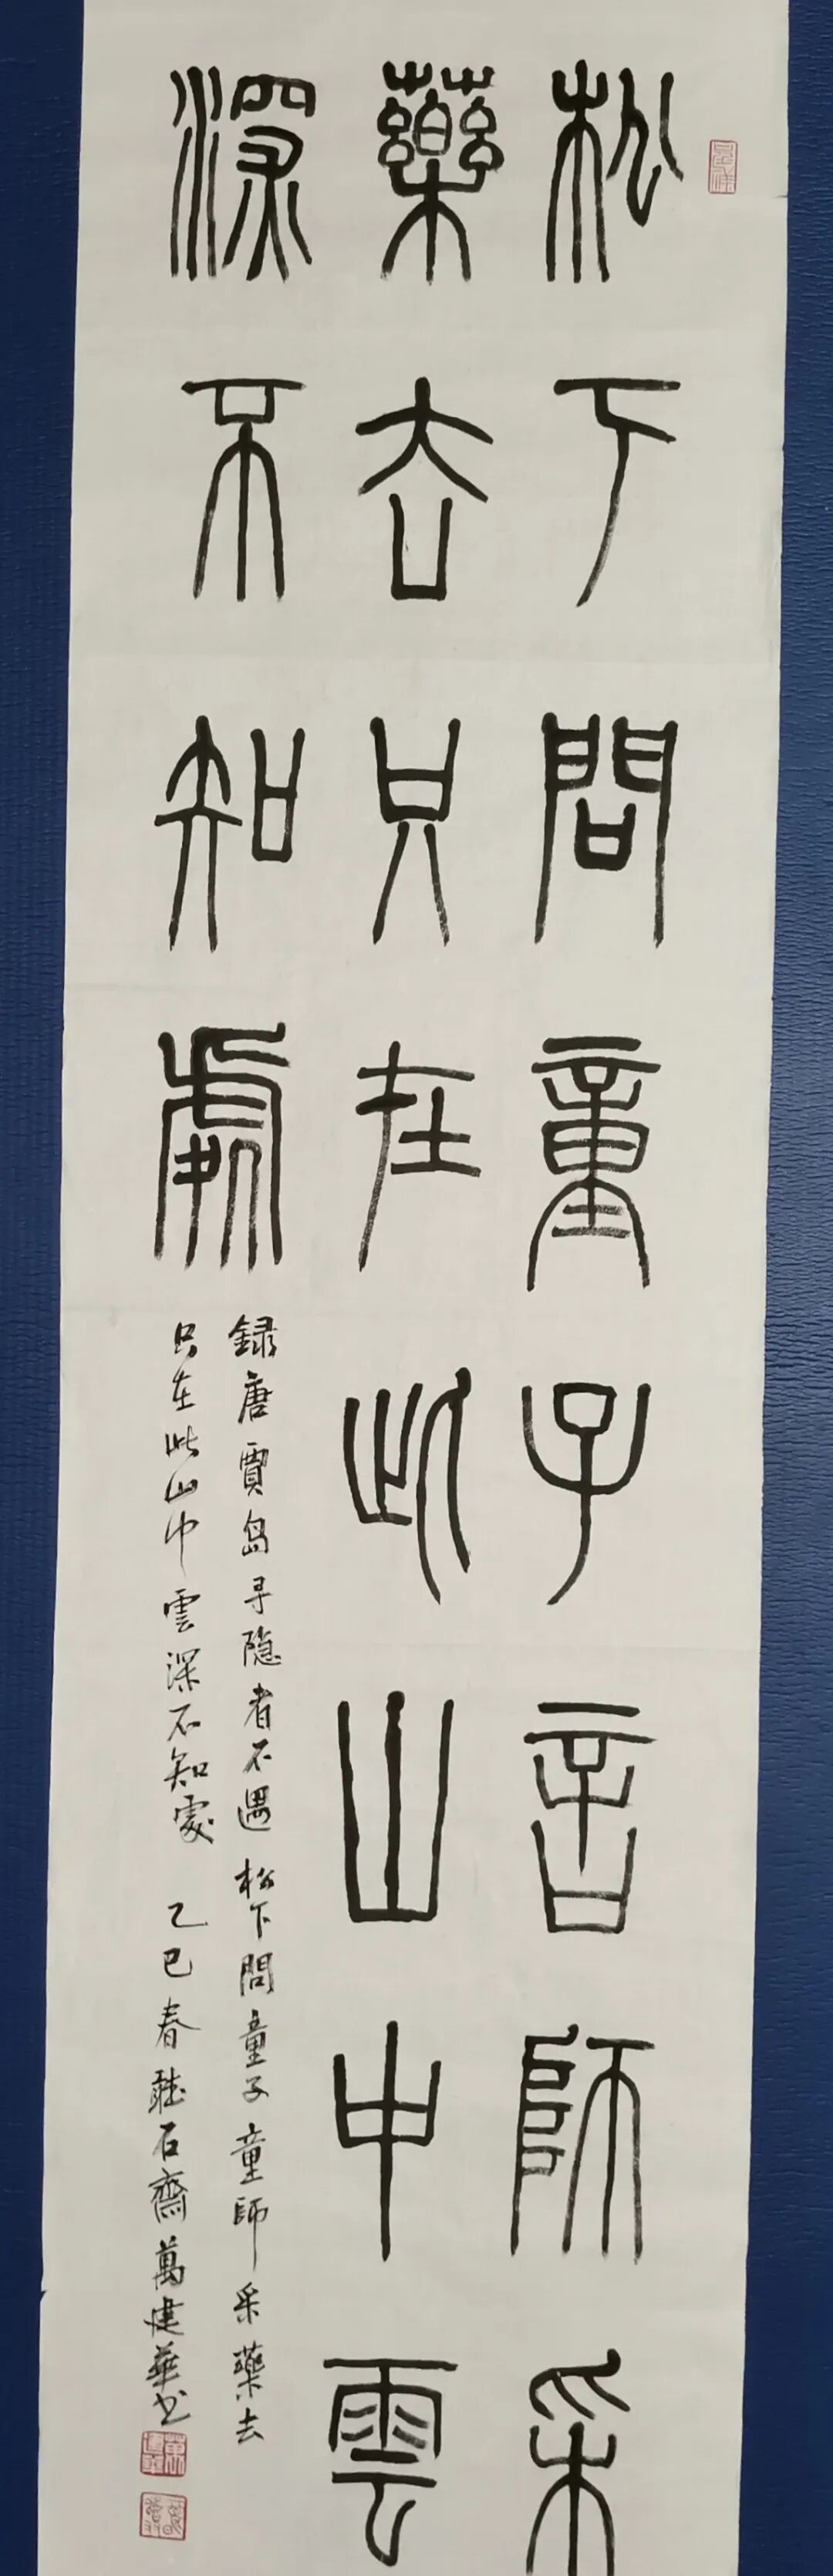 松下問童子言師采
藥去只在此山中雲
深不知處
録唐賈島寻隐者不遇 松下問童子童師采藥去
只在此山中雲深不知處 乙巳春聽石齋萬建華书